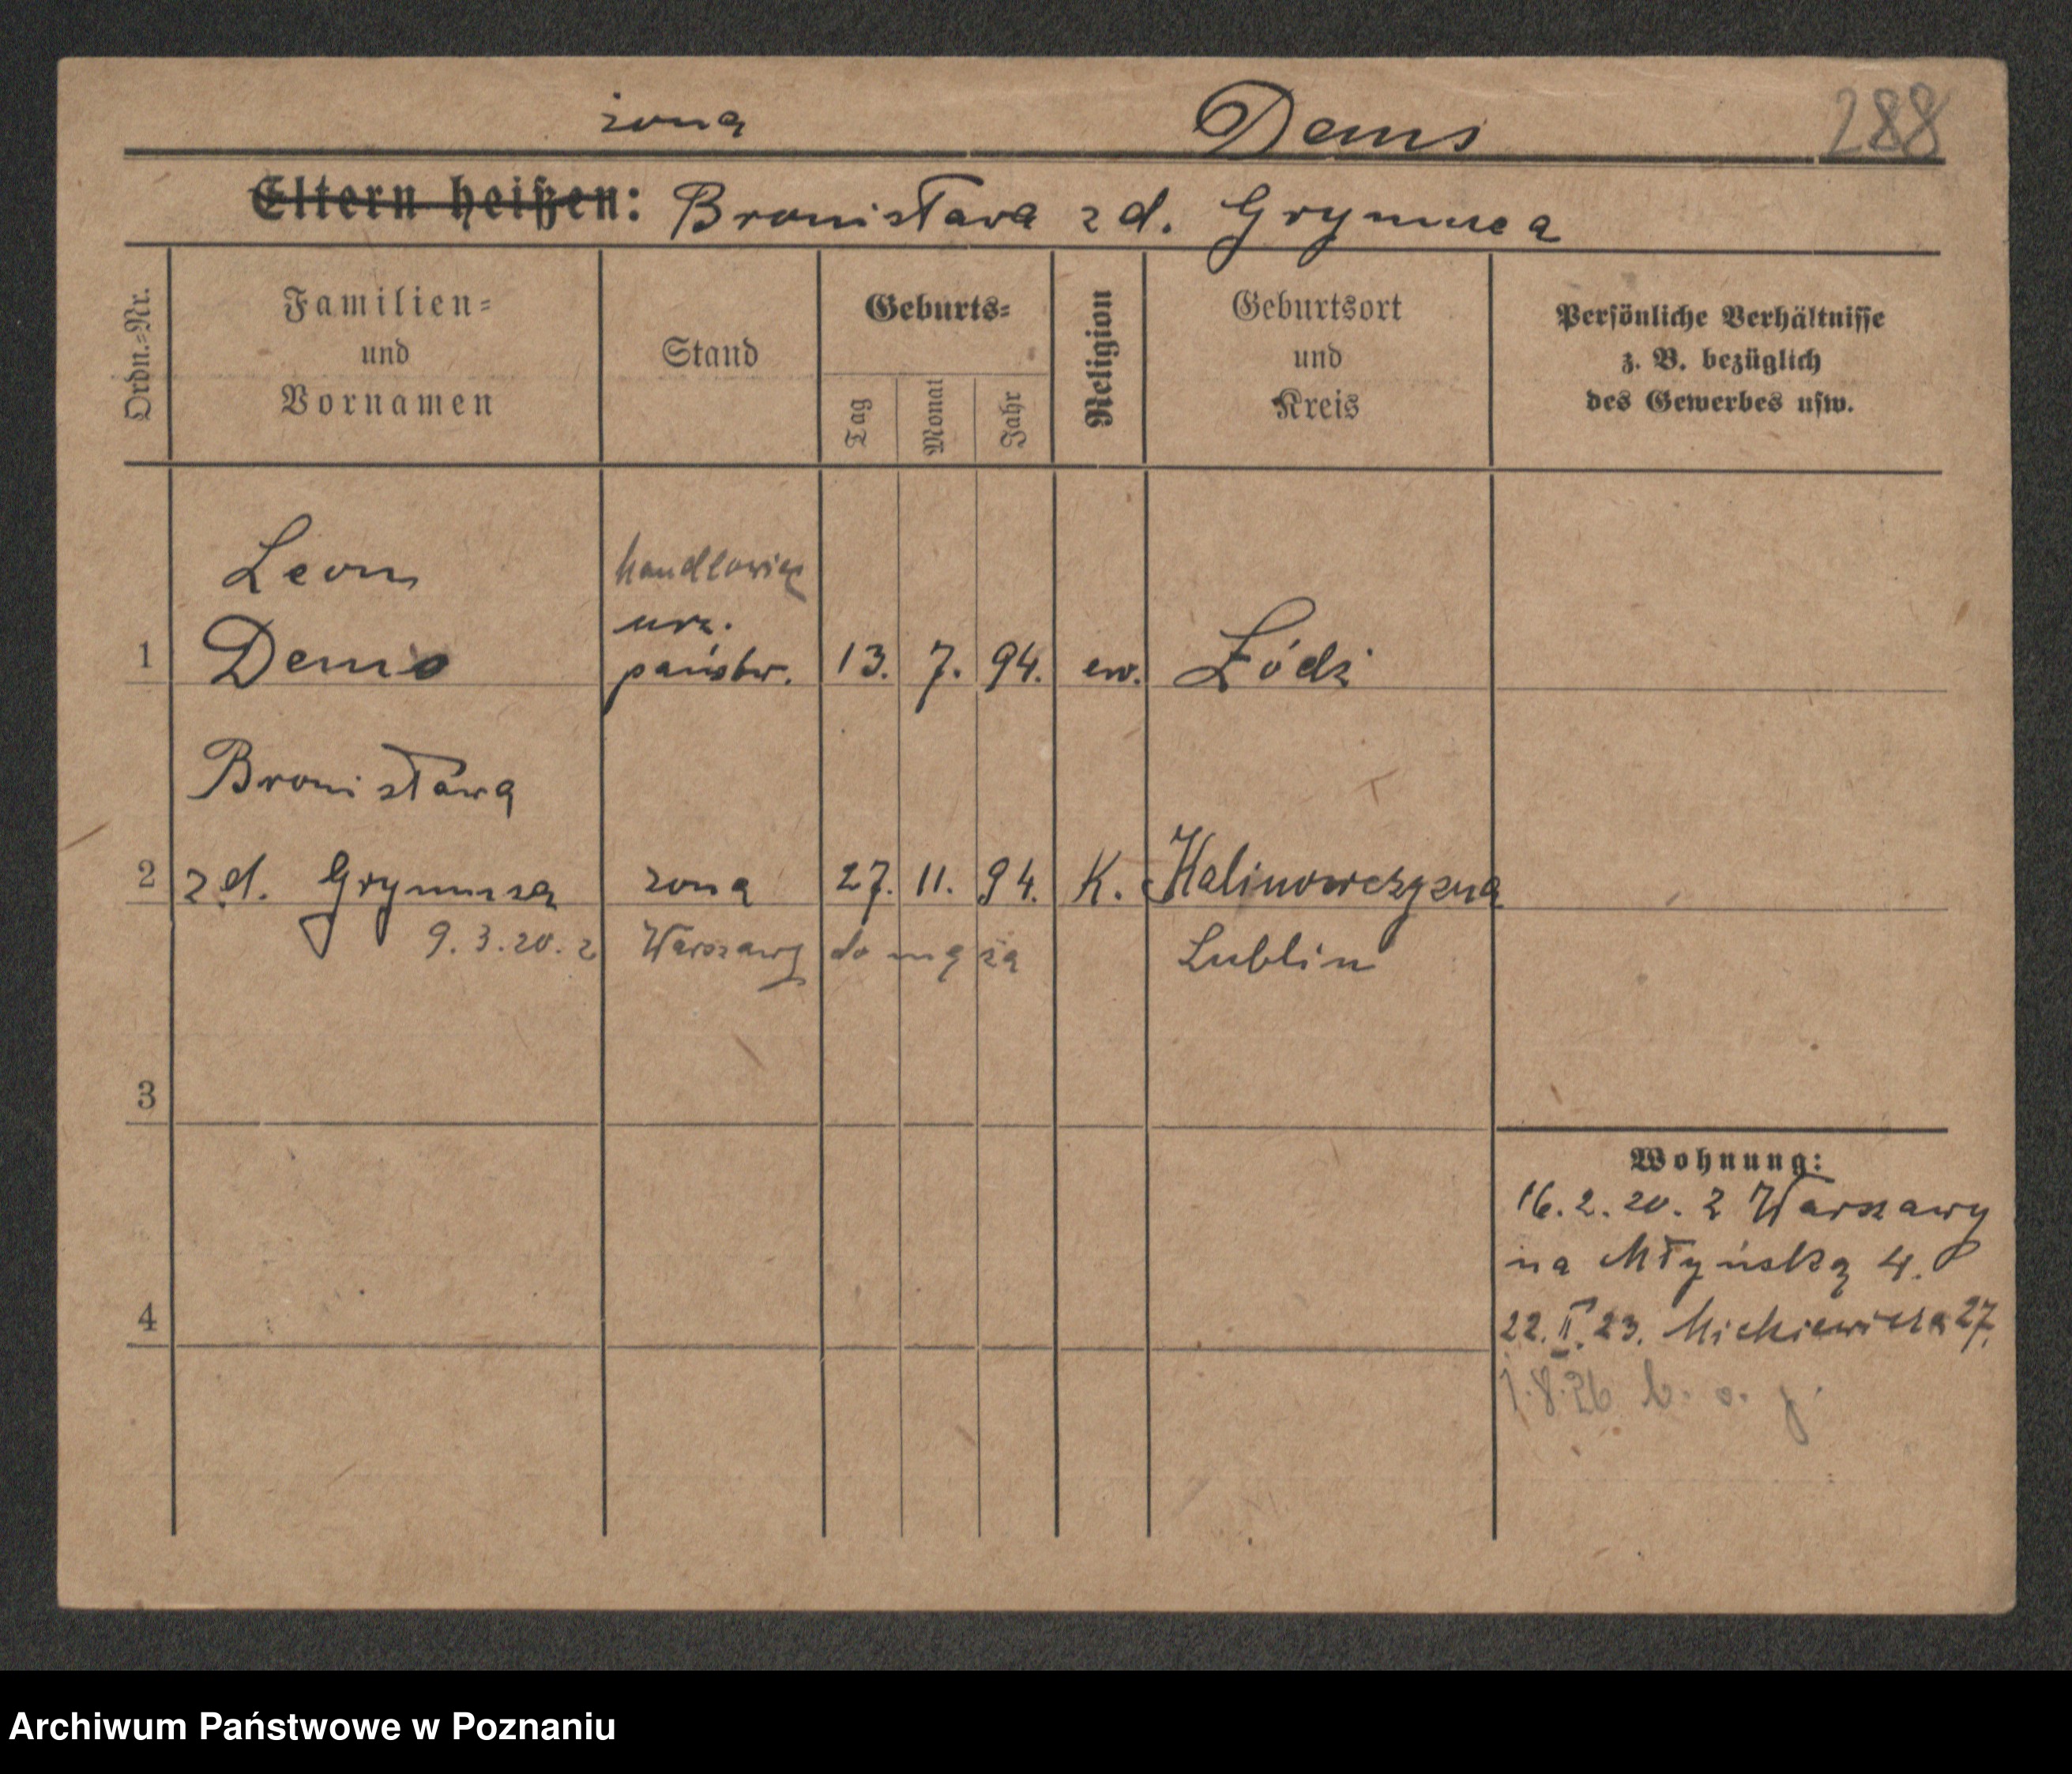 żona Dems 288
Eltern heißen: Bronisława zd. Grymuza
Ordn.=Nr.
Familien=
und
Vornamen
Stand
Geburts=
Tag
Monat
Jahr
Religion
Geburtsort
und
Kreis
Persönliche Verhältnisse
z. B. bezüglich
des Gewerbes usw.
Leon handlowiec
urz.
1 Dems państw. 13. 7. 94. ew. Łódź
Bronisława
2 zd. Grymuza żona 27. 11. 94. K. Kalinowszczyzna
9.3.20. z Warszawy do męża Lublin
3
Wohnung:
16.2.20. z Warszawy
na Młyńską 4.
4
22.II.23. Mickiewicza 27.
1.8.26
Archiwum Państwowe w Poznaniu